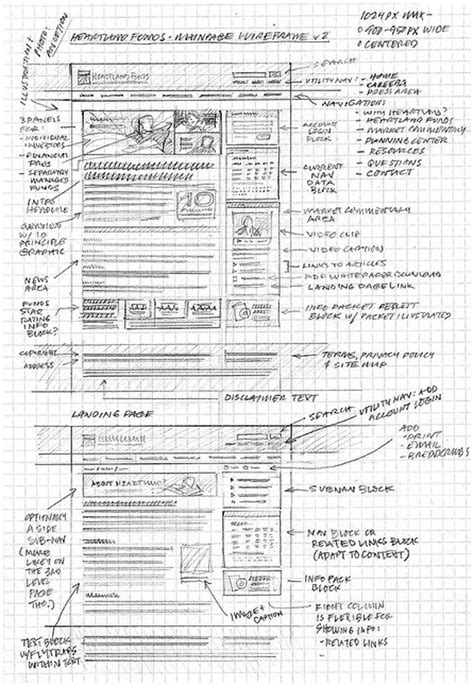 HEARTLAND FUNDS - MAINPAGE WIREFRAME v2
1024PX MAX -
○ 900-950PX WIDE
○ CENTERED
ILLUSTRATION &
PHOTO:
HEARTLAND FUNDS
SEARCH
UTILITY NAV:
- HOME
- CAREERS
- PRESS AREA
NAVIGATIONS
- WHY HEARTLAND?
- HEARTLAND FUNDS
- MARKET COMMENTARY
- PLANNING CENTER
- RESOURCES
- QUESTIONS
- CONTACT
3 PANELS
FOR:
- INDIVIDUAL
INVESTORS
- FINANCIAL
PROS
- SEPARATELY
MANAGED
FUNDS
ACCOUNT
LOGIN
BLOCK
INTRO
HEADLINE
CURRENT
NAV
DATA
BLOCK
OVERVIEW
W/ 10
PRINCIPLE
GRAPHIC
10
MARKET COMMENTARY
AREA
VIDEO CLIP
VIDEO CAPTION
NEWS
AREA
LINKS TO ARTICLES
PDF WHITEPAPER DOWNLOAD
LANDING PAGE LINK
FUNDS
STAR
RATING
INFO
BLOCK?
INFO PACKET
BLOCK W/ PACKET ILLUSTRATED
COPYRIGHT
ADDRESS
TERMS, PRIVACY POLICY
& SITE MAP
DISCLAIMER TEXT
LANDING PAGE
SEARCH
UTILITY NAV: ADD
ACCOUNT LOGIN
ADD
- PRINT
- EMAIL
- BREADCRUMBS
ABOUT HEARTLAND?
SUBNAV BLOCK
OPTIONALLY
A SIDE
SUB-NAV
(MORE
LIKELY ON
THE 3RD
LEVEL
PAGE
THO.)
NAV BLOCK OR
RELATED LINKS BLOCK
(ADAPT TO CONTEXT)
INFO PACK
BLOCK
IMAGE &
CAPTION
RIGHT COLUMN
IS FLEXIBLE FOR
SHOWING INFO:
- RELATED LINKS
TEXT BLOCK
W/ FLYTRAPS
WITHIN TEXT